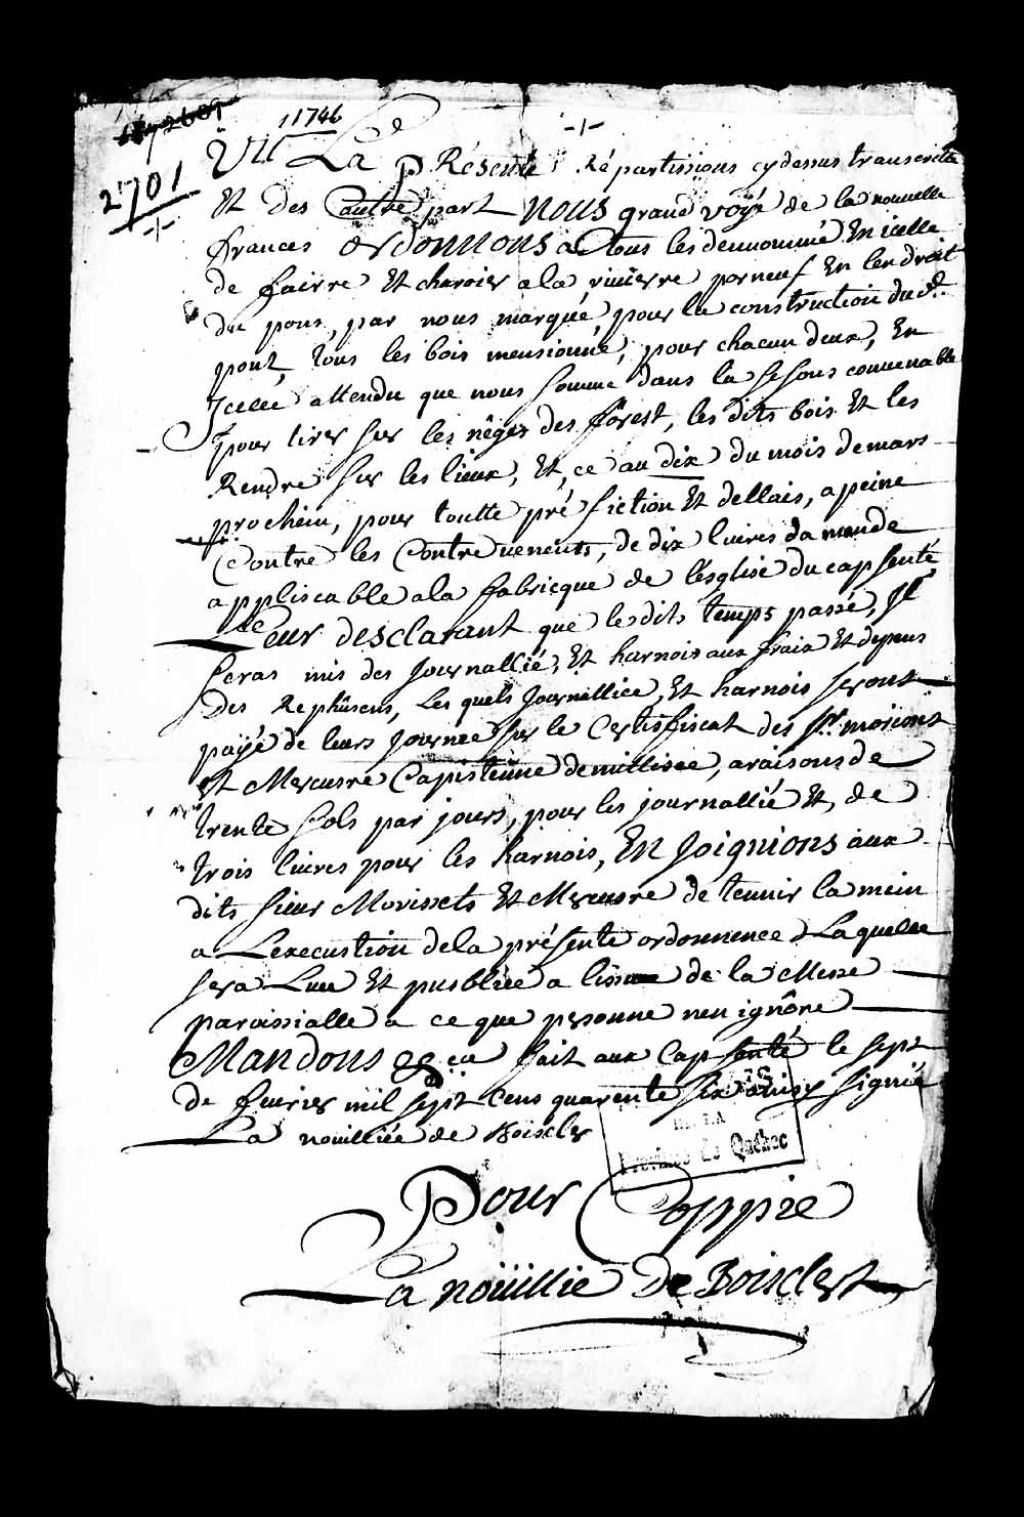 11746
2701
Vu La présente Répartissions cy dessus transcritte
Et des Lautre part nous grand voyé de la nouvelle
frances ordonnons a Tous les dennommé En icelle
de fairre Et charoier a la riuierre porneuf En lendroit
du pons, par nous marqué, pour la construction du dt.
pont, tous les bois mensionné, pour chacun deux, En
Jcelle attendu que nous somme dans la sesons convenable
pour tirer sur les nêges des forest, les dits bois Et les
Rendre sur les lieux, Et, ce au dix du mois de mars
prochein, pour toutte pré fiction Et dellais, a peine
Contre les Contrevenents, de dix liures da mande
appliscable a la fabricque de lésglise du cap senté
Leur desclarant que le dit, temps passé, Jl
seras mis des Journallié, Et harnois aux fraix Et depens
des Rephûsens, Les quels Journalliee, Et harnois seront
payé de leurs Journee sur le Certisfiscat des Srs. morisset
et Mercusre Capisteine de millisce, a raisons de
trente sols par jours, pour les journallié Et, de
trois liures pour les harnois, En Joignions aux
dits sieur Morissets Et Mercusre de tennir la mein
a Lexecustion de la présente ordonnence Laquelle
sera Luee Et pusbliée a lissue de la Messe
paroissialle a ce que personne nen ignôre
Mandons &c fait aux Cap senté le sept
de feurier mil sept Cens quarente six signié
La nouilliée de Boiscler
Province de Québec
Pour Coppie
La noüillie de Boisclert